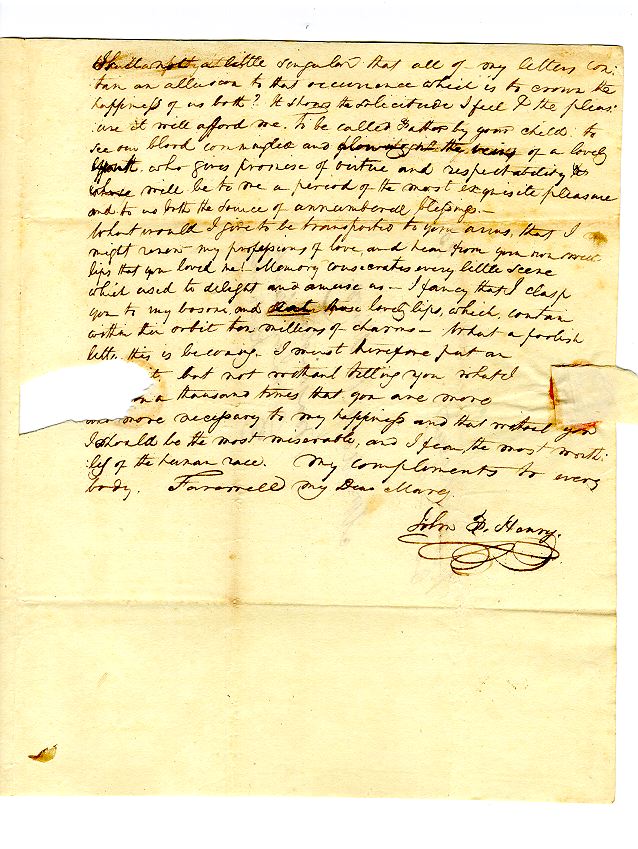 Is it not a little singular that all of my letters con:
tan an allusion to that occurrance which is to crown the
happiness of us both? It shows the solicitude I feel & the pleas:
:ure it will afford me. To be called Father by your child. to
see our blood commingled and flowing in the veins of a lovely
youth, who gives promise of virtue and respectability to
whose will be to me a period of the most exquisite pleasure
and to us both the source of unnumbered blessings.—
What would I give to be transported to your arms, that I
might renew my professions of love, and hear from your own sweet
lips that you loved me! Memory consecrates every little scene
which used to delight and amuse us — I fancy that I clasp
you to my bosom, and those lovely lips, which contain
within their orbit ten millions of charms — What a foolish
letter this is becoming. I must therefore put an
it but not without telling you what I
a thousand times that you are more
and more necessary to my happiness and that without you
I should be the most miserable, and I fear, the most worth:
:less of the human race. My compliments to every
body. Farewell my Dear Mary
John P. Henry.